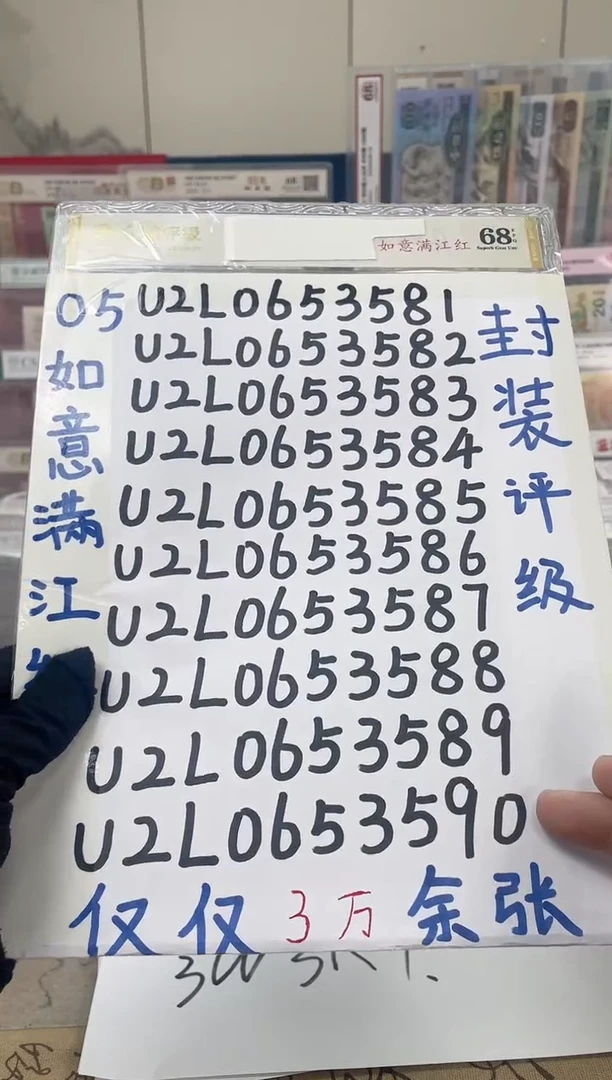 如意满江红 68
Superb Gem Unc
05
如
意
满
江
U2L0653581
U2L0653582
U2L0653583
U2L0653584
U2L0653585
U2L0653586
U2L0653587
U2L0653588
U2L0653589
U2L0653590
封
装
评
级
仅仅3万余张
68